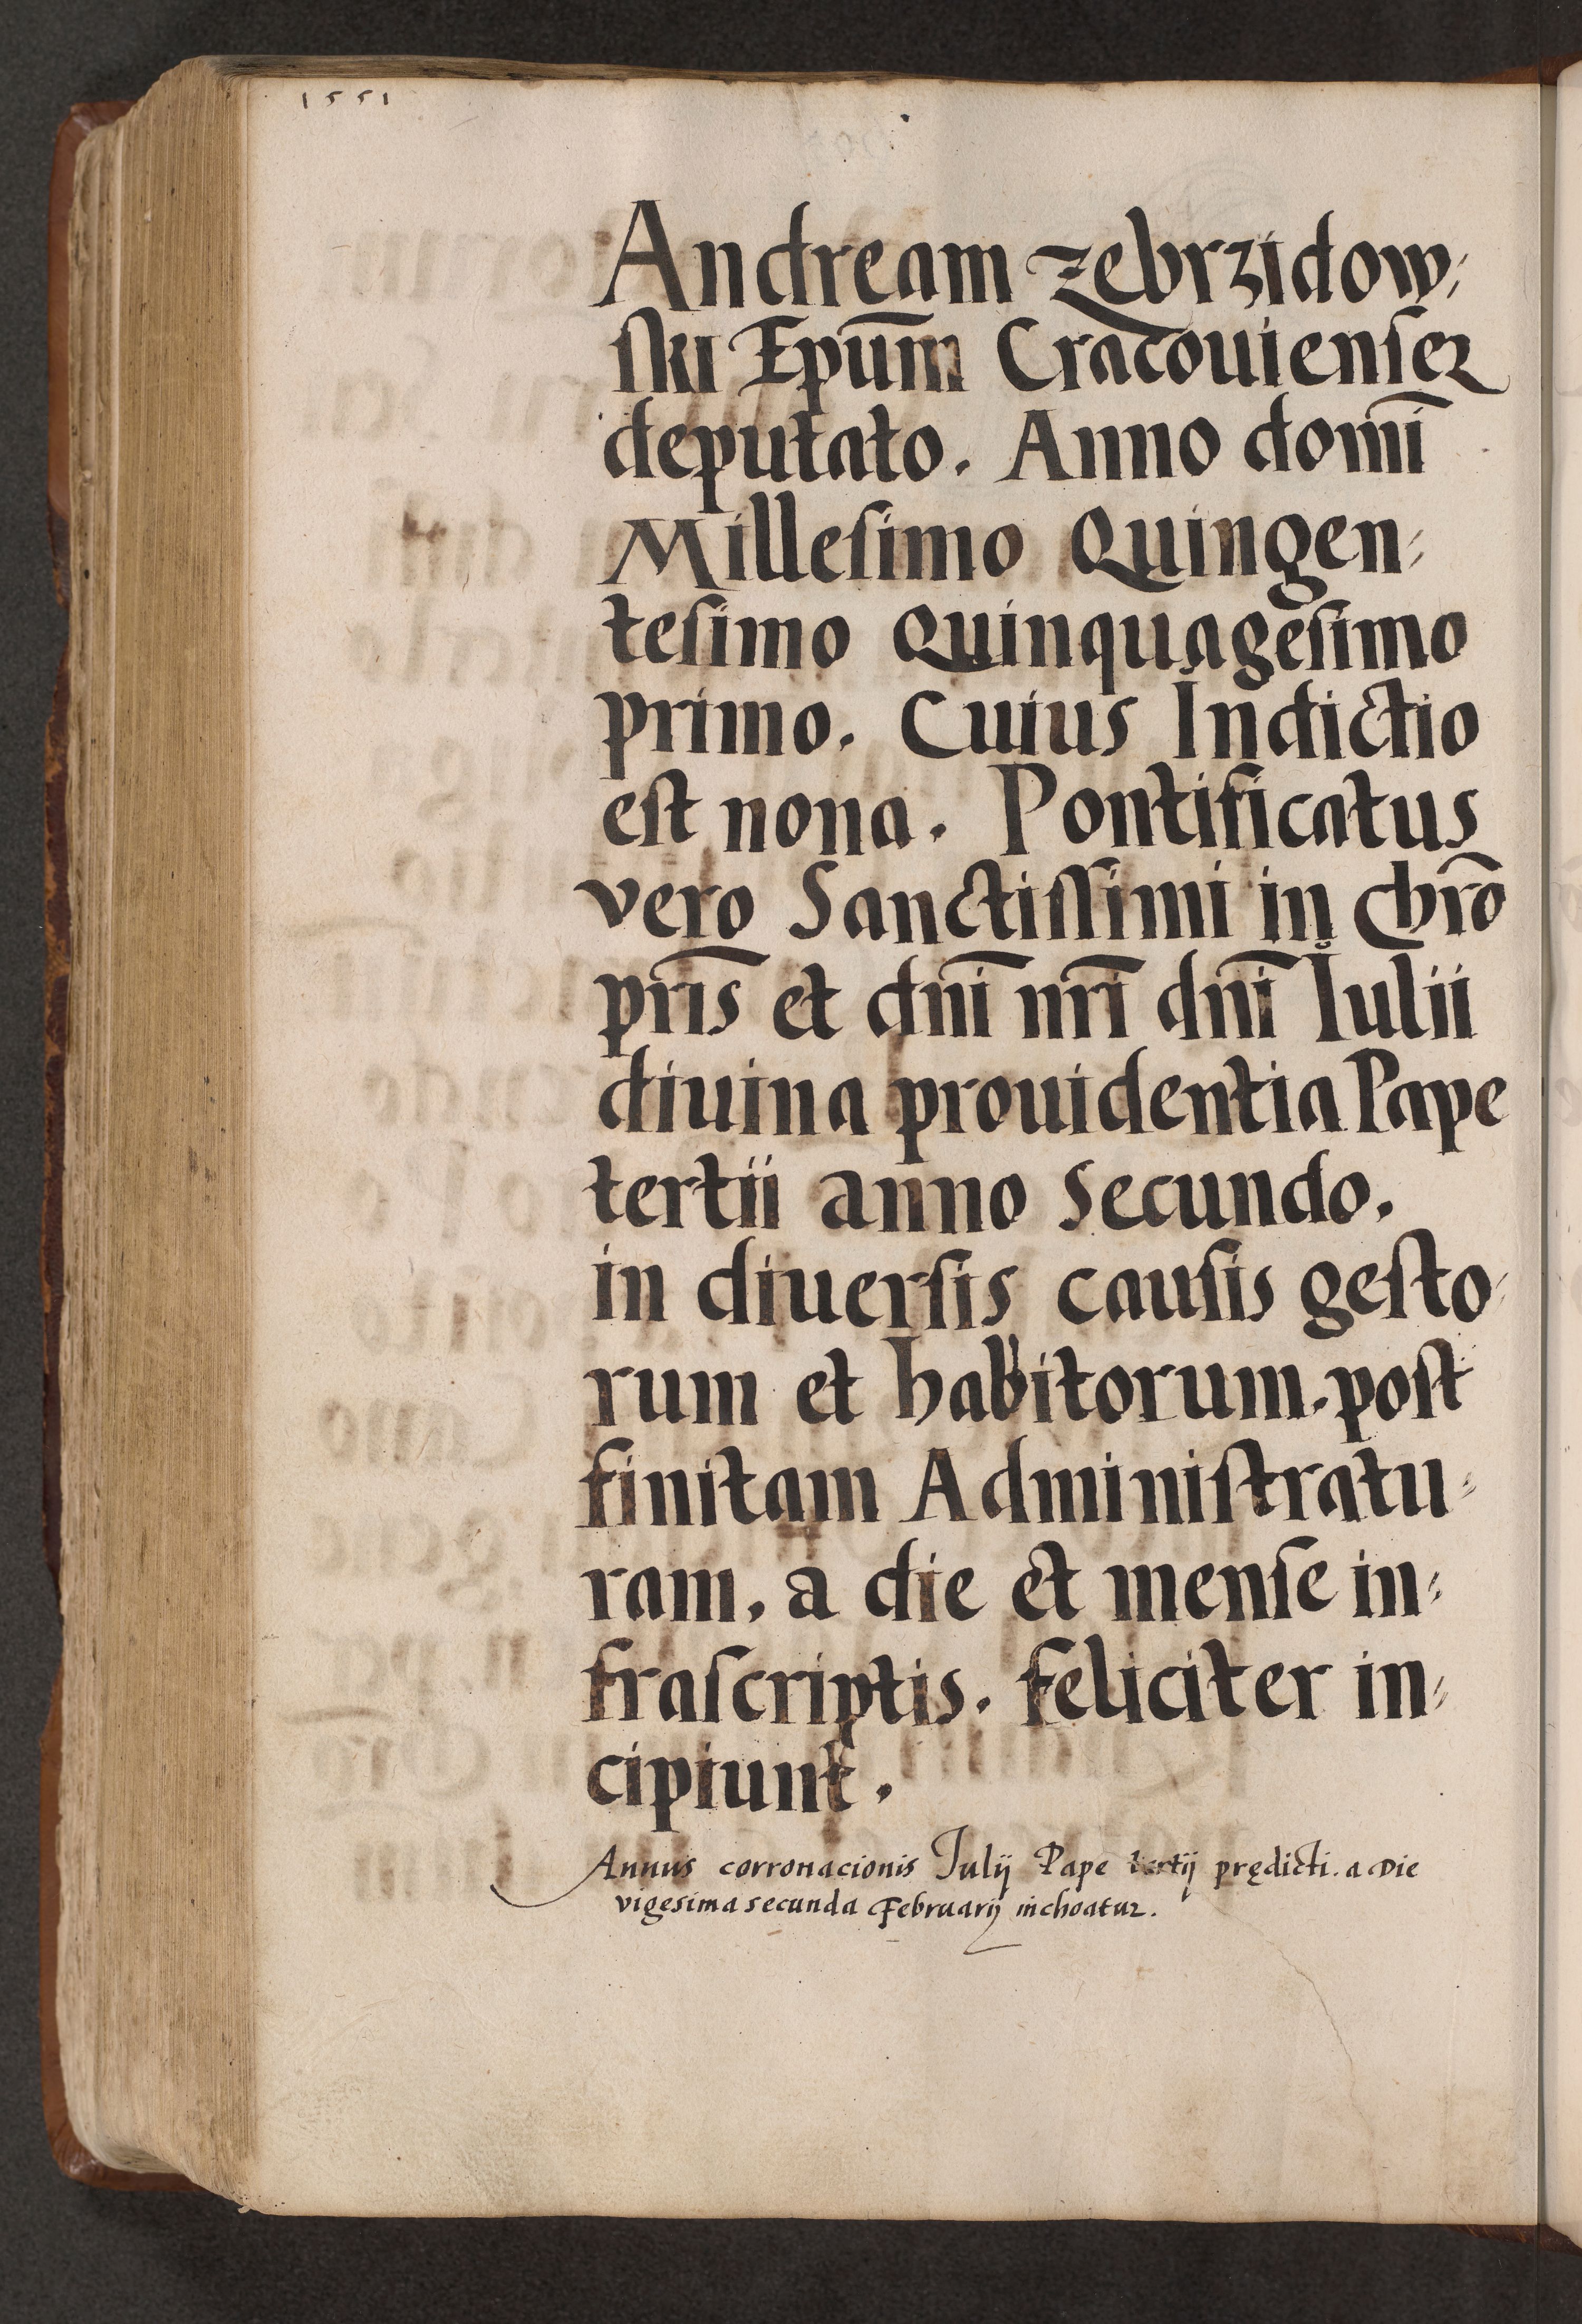 1551
Andream Zebrzidow⸗
ſki Epūm Cracouienſeꝫ
deputato. Anno domī
Milleſimo Quingen⸗
teſimo Quinquageſimo
primo. Cuius Indictio
eſt nona. Pontificatus
vero Sanctiſſimi in Chrō
prīs et dnī nrī dnī Iulii
diuina prouidentia Pape
tertii anno Secundo.
in diuerſis cauſis geſto⸗
rum et habitorum. poſt
finitam Adminiſtratu⸗
ram. a die et menſe in⸗
fraſcriptis. feliciter in⸗
cipiunt.
Annus corronacionis Iulij Pape tertij prędicti. a Die
vigesima secunda Februarij inchoatur.